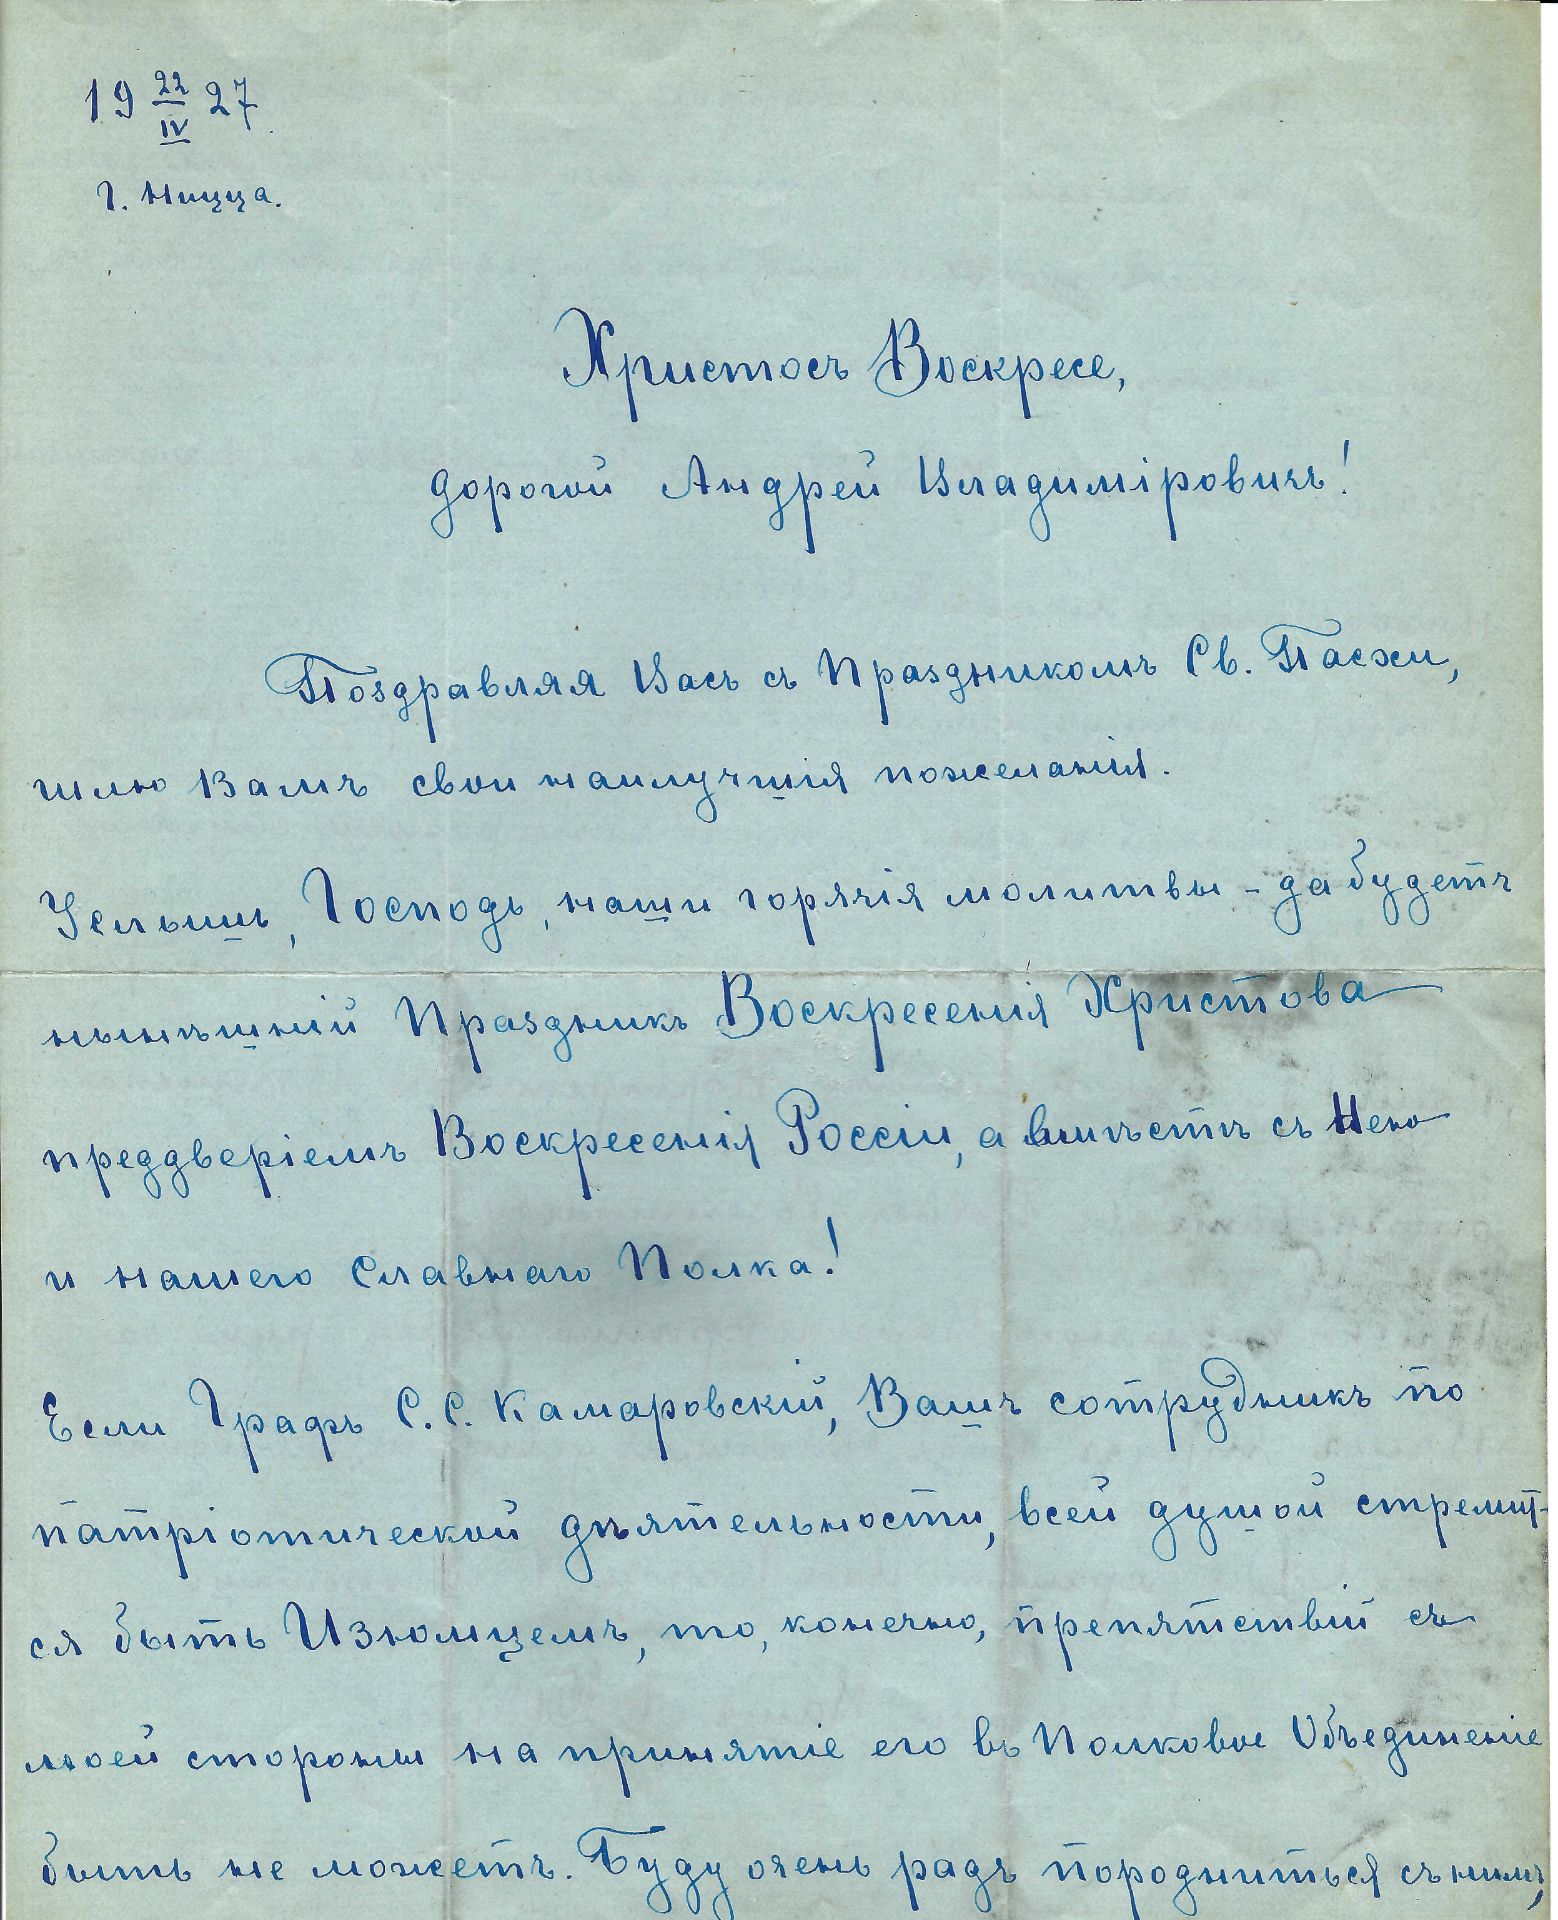 19 22/IV 27.
г. Ницца.
Христосъ Воскресе,
дорогой Андрей Владиміровичъ!
Поздравляя Васъ съ Праздникомъ Св. Пасхи,
шлю Вамъ свои наилучшія пожеланія.
Услышь, Господь, наши горячія молитвы – да будетъ
нынѣшній Праздникъ Воскресенія Христова
преддверіемъ Воскресенія Россіи, а вмѣстѣ съ Нею
и нашего Славнаго Полка!
Если Графъ С. С. Камаровскій, Вашъ сотрудникъ по
патріотической дѣятельности, всей душой стремит-
ся быть Изюмцемъ, то, конечно, препятствій съ
моей стороны на принятіе его въ Полковое Объединеніе
быть не можетъ. Буду очень радъ породниться съ нимъ,